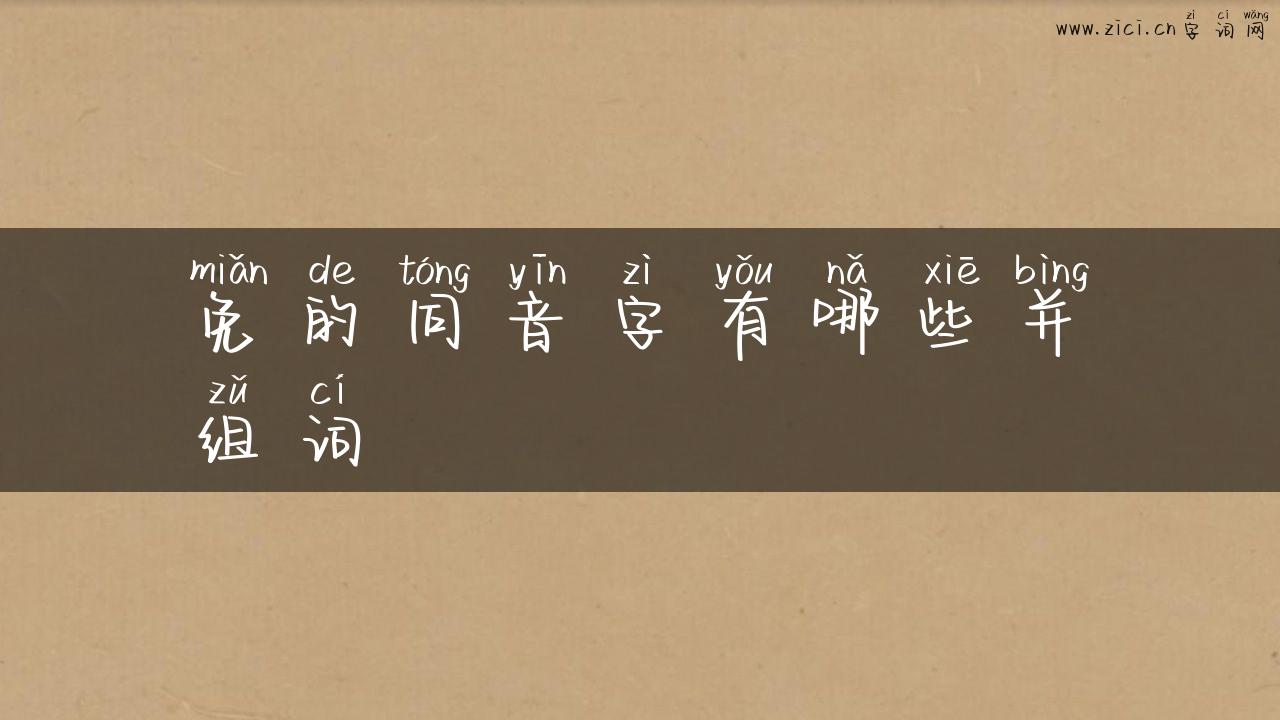 zì cí wǎng
www.zici.cn 字词网
miǎn de tóng yīn zì yǒu nǎ xiē bìng
免的同音字有哪些并
zǔ cí
组词